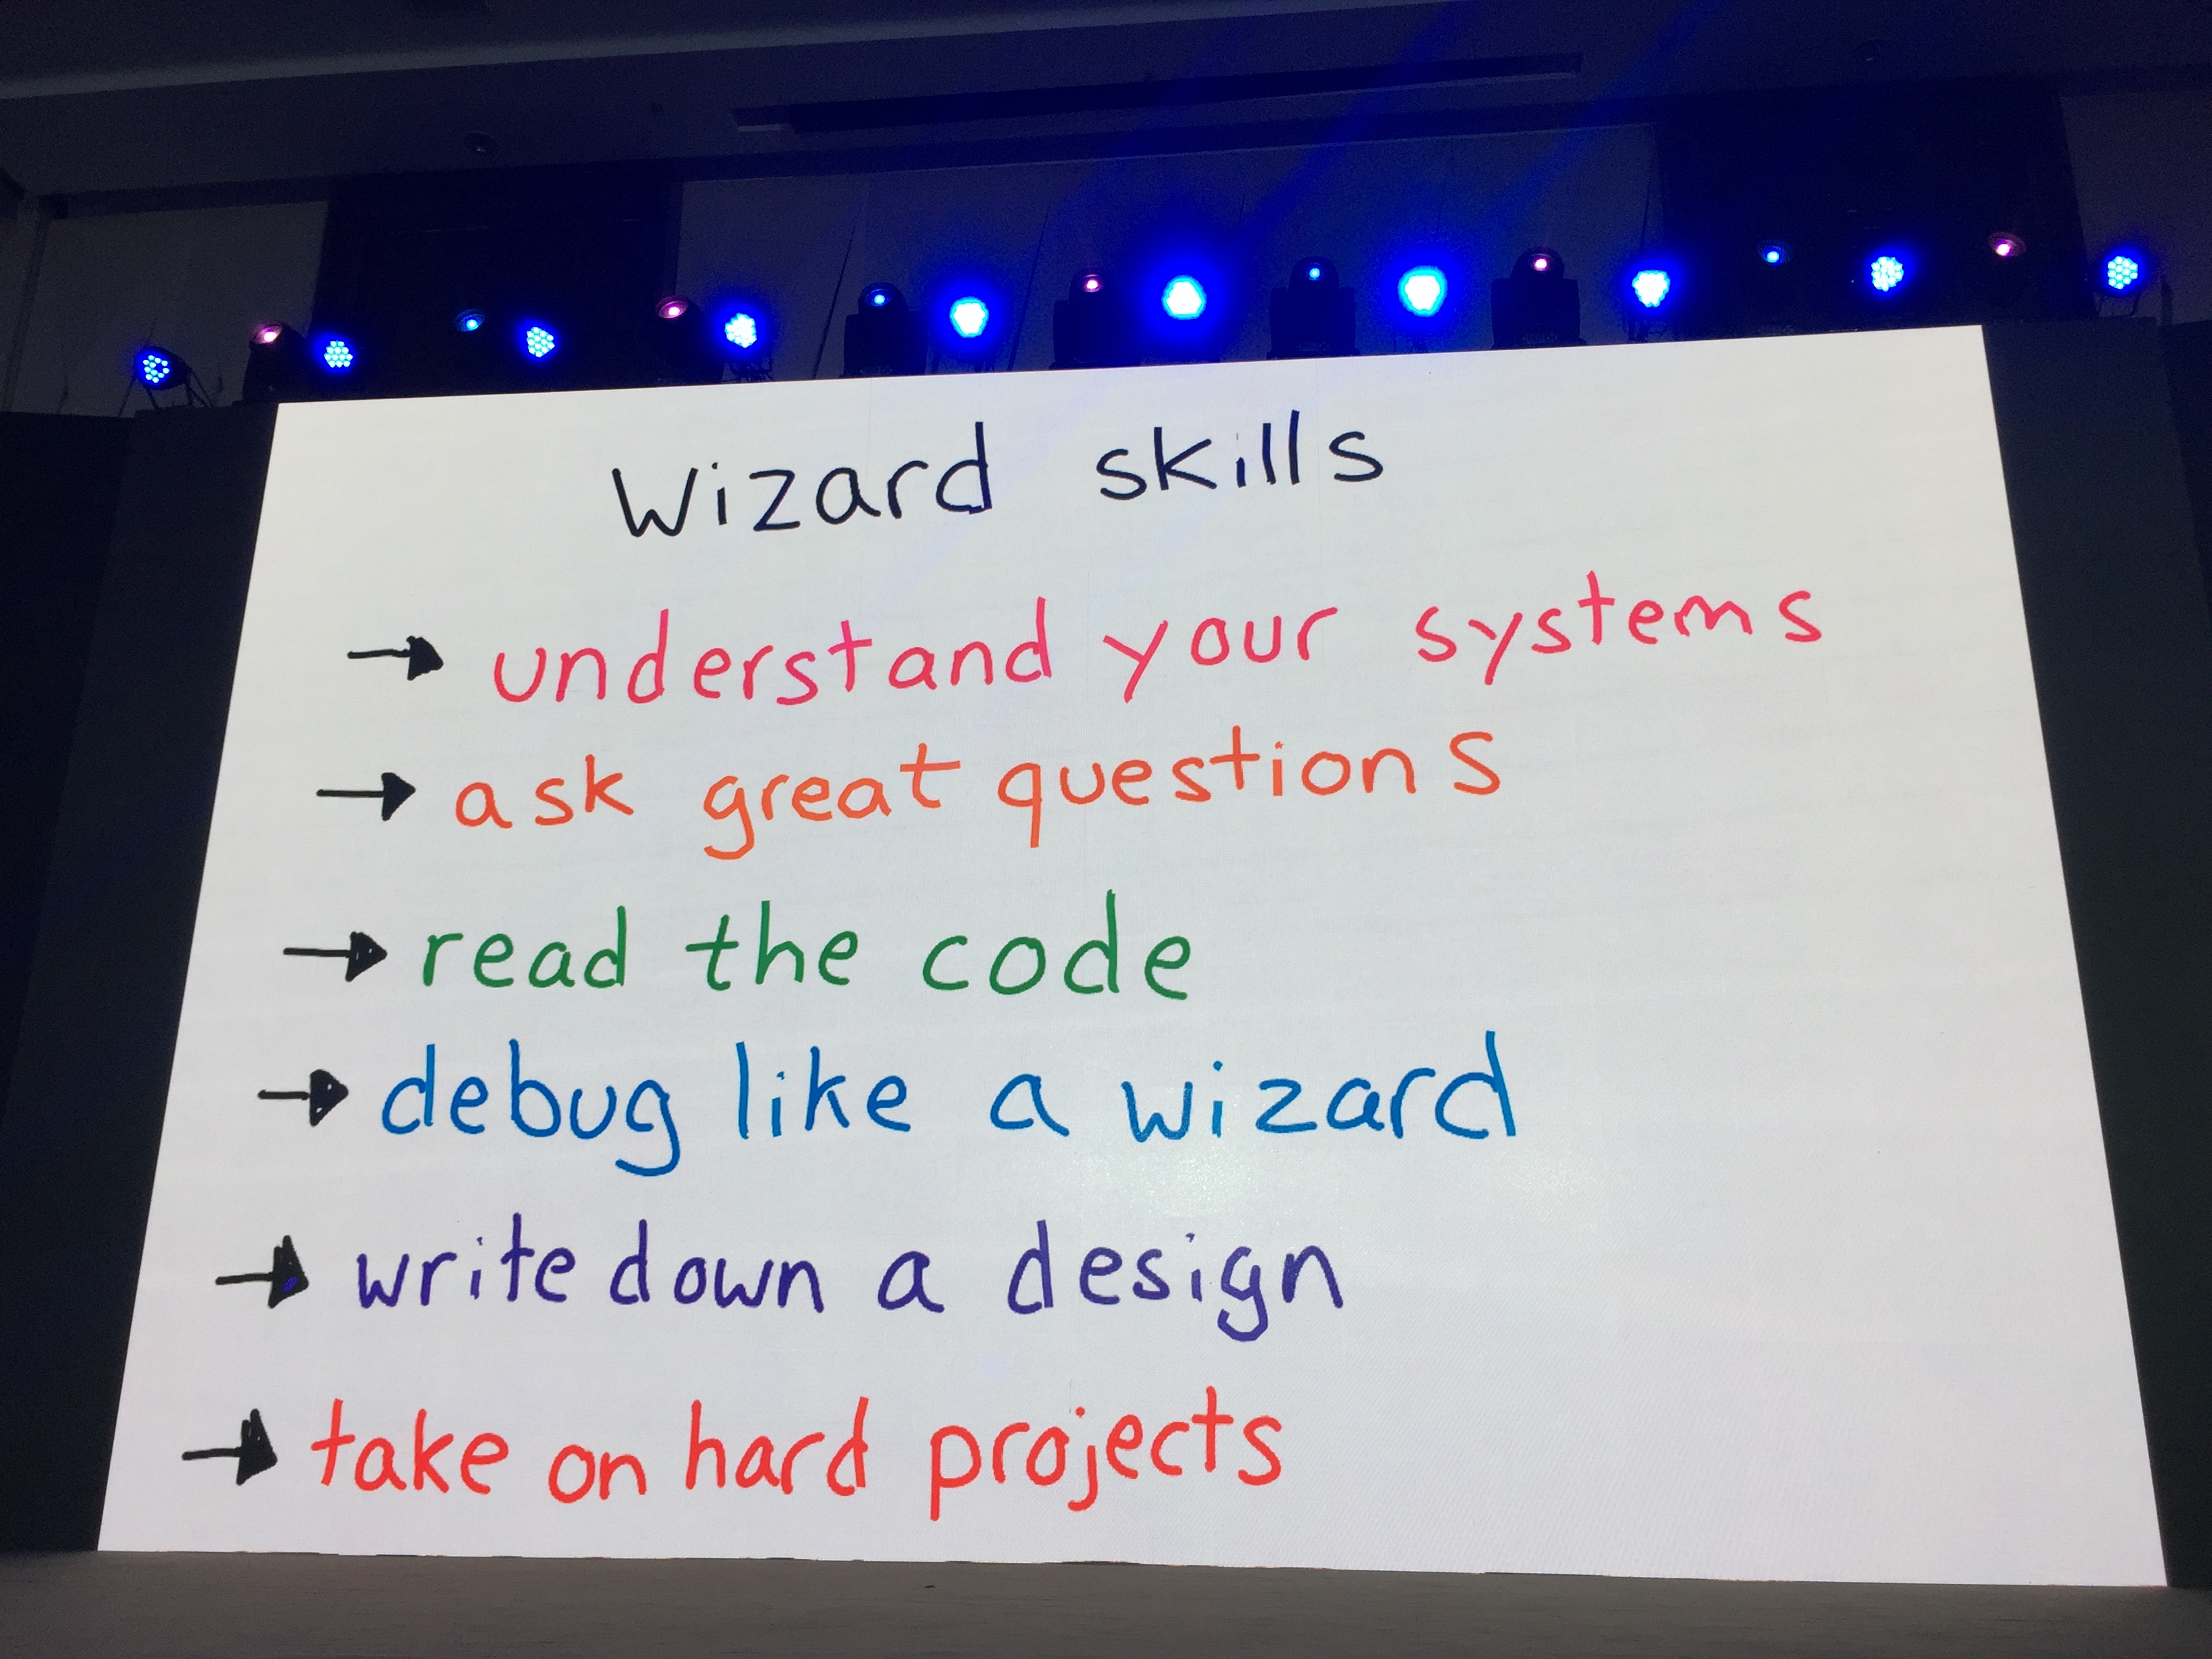 Wizard skills
→ understand your systems
→ ask great questions
→ read the code
→ debug like a wizard
→ write down a design
→ take on hard projects